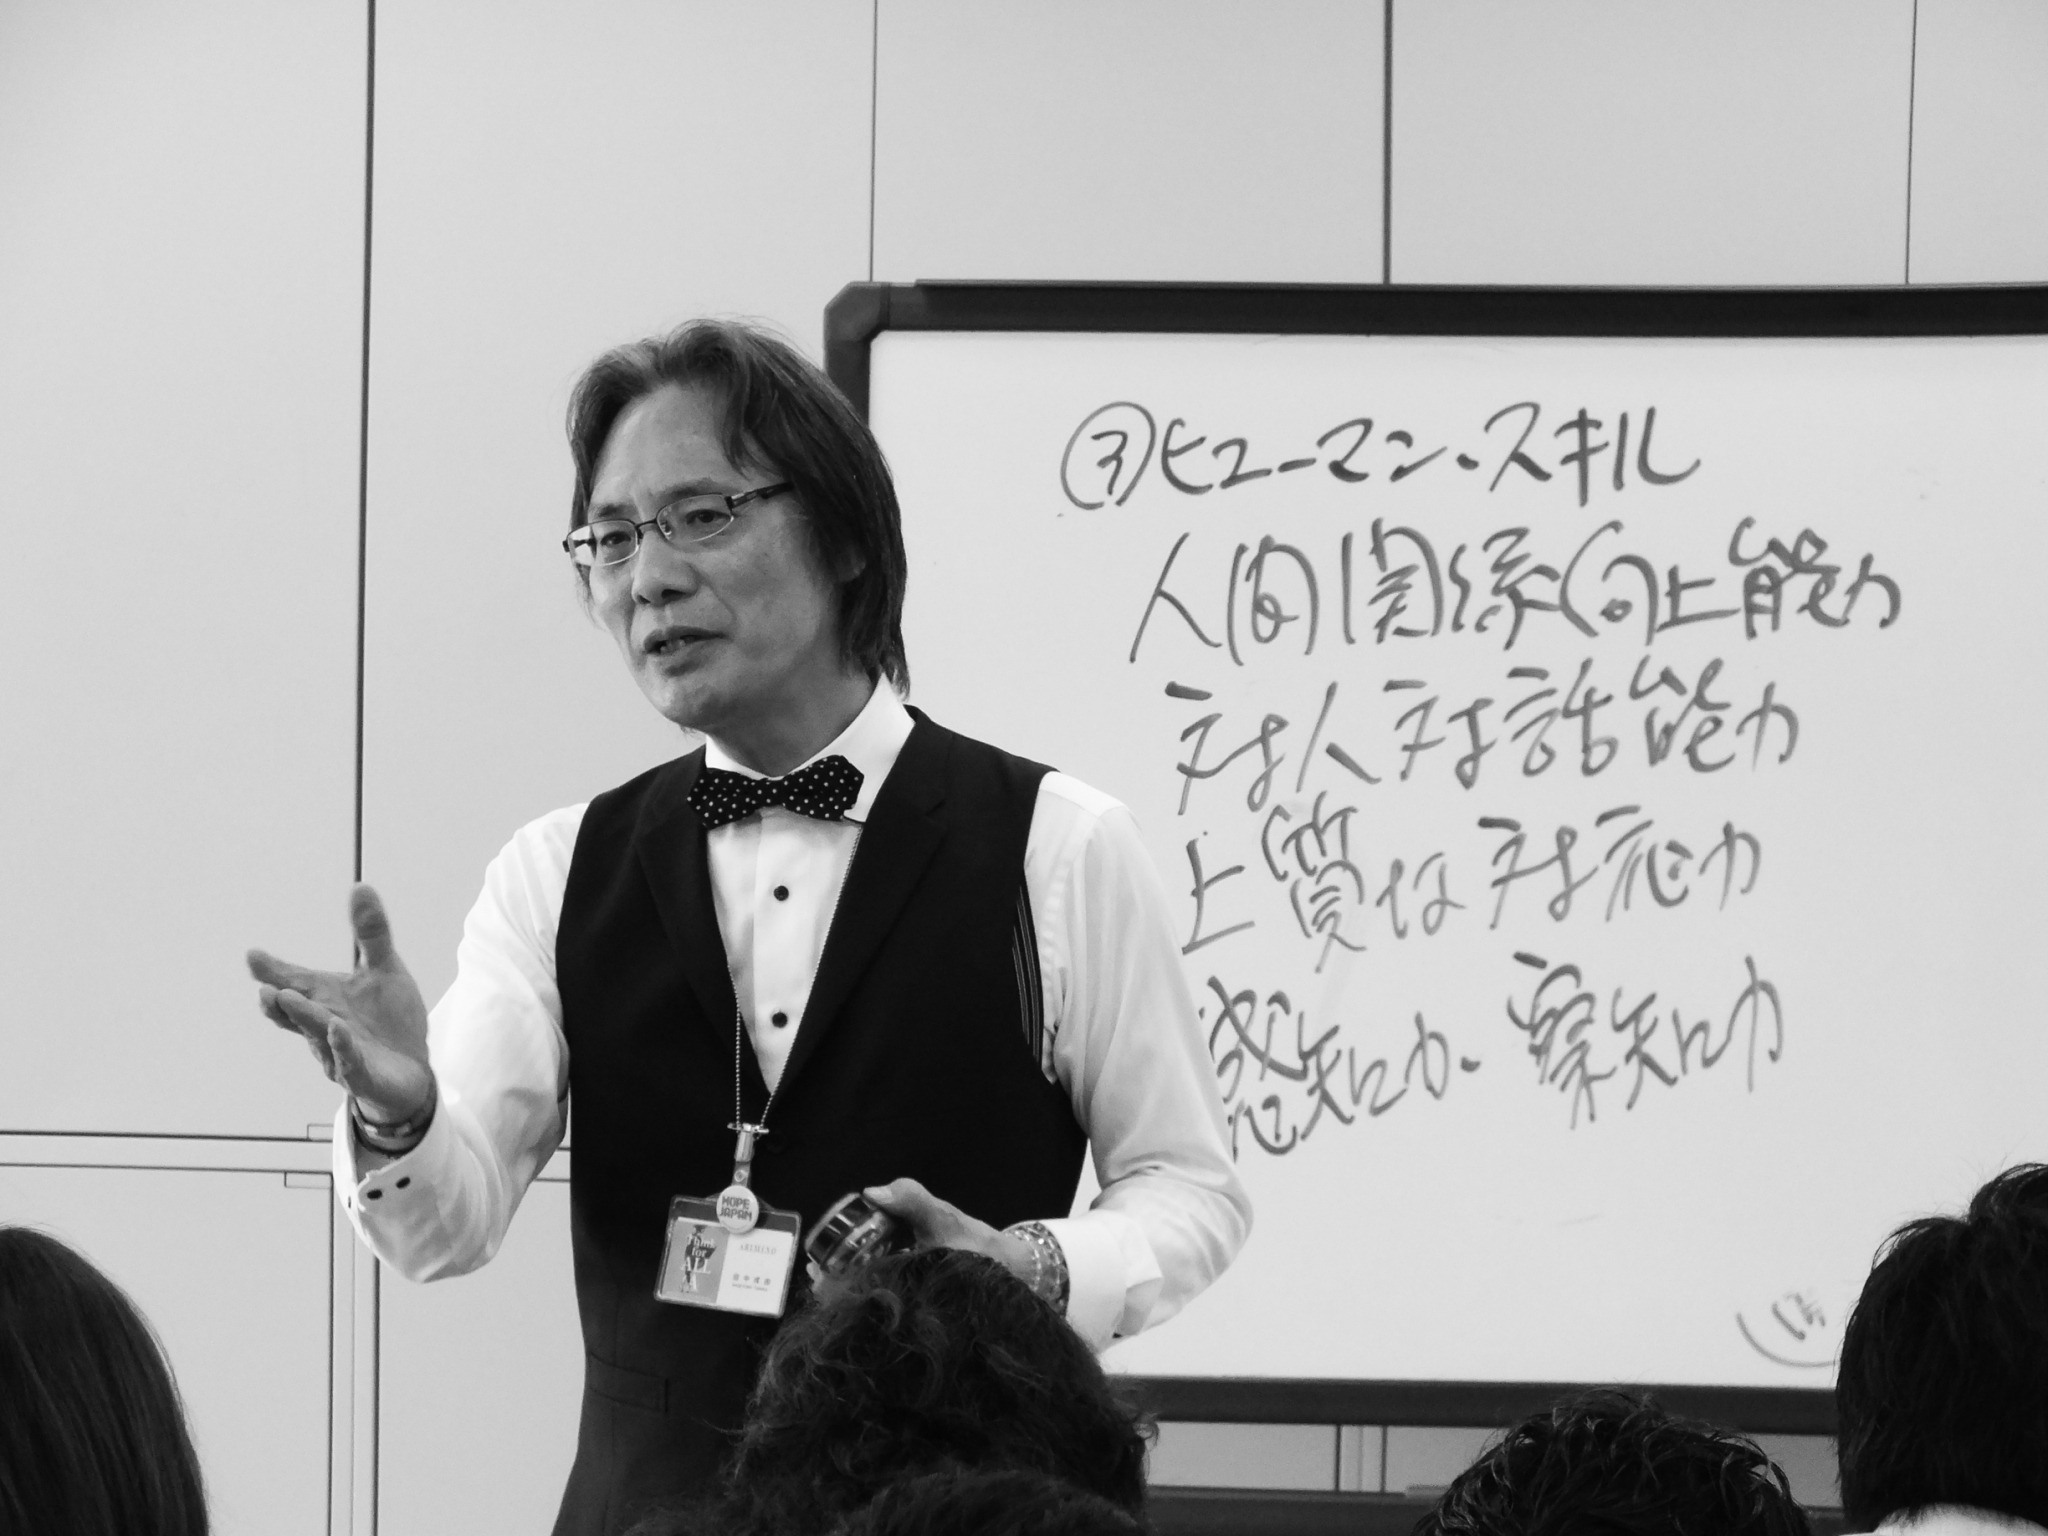 ③ヒューマン・スキル
人間関係向上能力
対人対話能力
上質な対応力
感知力・察知力
HOPE
JAPAN
Think
for
ALL